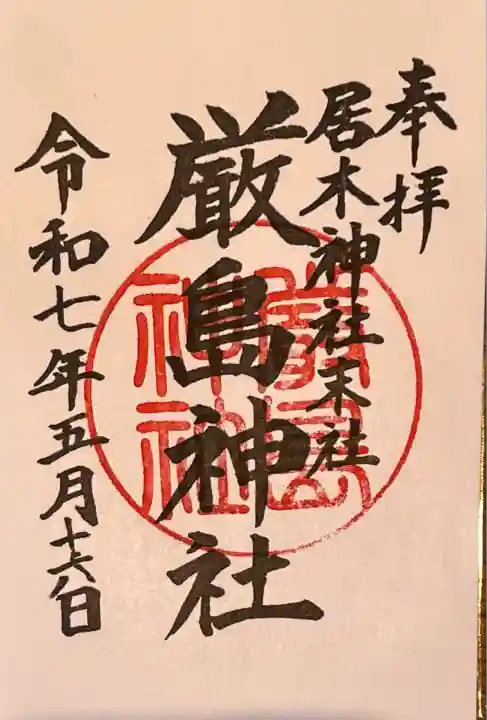 奉拝
居木神社末社
厳島神社
嚴島神社
令和七年五月十六日